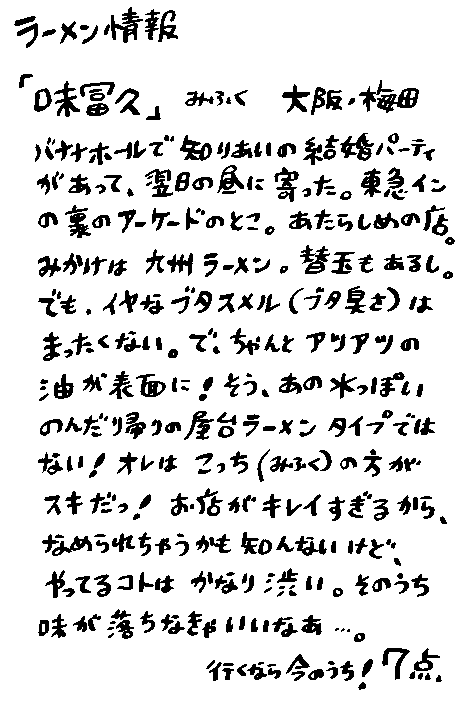 ラーメン情報
「味冨久」 みふく 大阪・梅田
バナナホールで知りあいの結婚パーティ
があって、翌日の昼に寄った。東急イン
の裏のアーケードのとこ。あたらしめの店。
みかけは九州ラーメン。替玉もあるし。
でも、イヤなブタスメル(ブタ臭さ)は
まったくない。で、ちゃんとアツアツの
油が表面に!そう、あの水っぽい
のんだり帰りの屋台ラーメンタイプでは
ない!オレはこっち(みふく)の方が
スキだっ!お店がキレイすぎるから、
なめられちゃうかも知んないけど、
やってるコトはかなり渋い。そのうち
味が落ちなきゃいいなあ…。
行くなら今のうち! 7点.